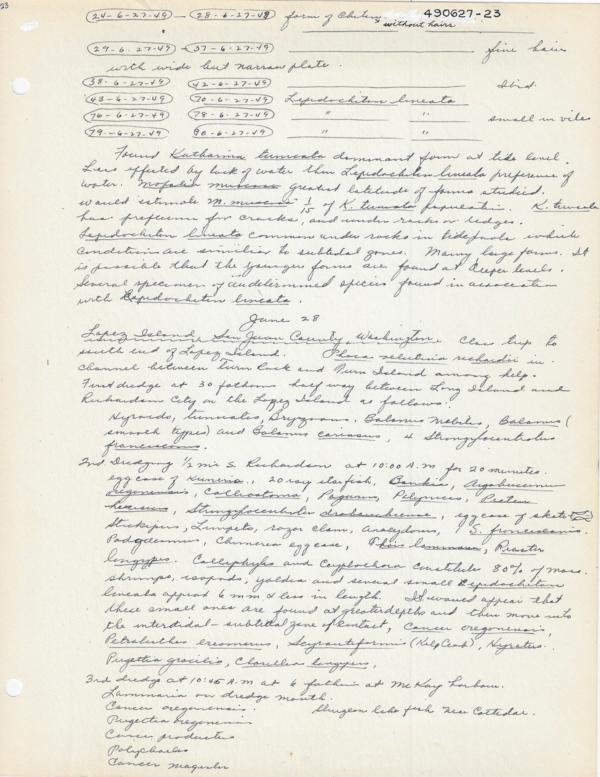 23
(24-6-27-49) — (28-6-27-49) form of Chiton, without hairs 490627-23
(29-6-27-49) (37-6-27-49) fine hairs
with wide but narrow plate.
(38-6-27-49) (42-6-27-49) Ibid.
(43-6-27-49) (70-6-27-49) Lepidochiton lineata
(76-6-27-49) (78-6-27-49) " " small in vile
(79-6-27-49) (80-6-27-49) " "
Found Katharina tunicata dominant form at tide level.
Less effected by lack of water than Lepidochiton lineata preference of
water. Mopalia muscosa greatest latitude of forms studied.
would estimate M. muscosa 1/15 of K. tunicata population. K. tunicata
has preference for cracks, and under rocks or ledges.
Lepidochiton lineata common under rocks in tidepools which
conditions are similiar to subtidal zones. Many large forms. It
is possible that the younger forms are found at deeper levels.
Several specimen of undetermined species found in association
with Lepidochiton lineata.
June 28
Lopez Island, San Juan County, Washington. Class trip to
south end of Lopez Island. Phoca vitulina richardii in
channel between Turn Rock and Turn Island among kelp.
First dredge at 30 fathoms half way between Long Island and
Richardson City on the Lopez Island as follows:
Hyroids, tunicates, Bryzoans. Balanus nubilus, Balanus (
smooth types) and Balanus cariosus, 4 Strongylocentrotus
franciscanus.
2nd Dredging 1/2 mi S. Richardson at 10:00 A.M for 20 minutes.
egg case of 20 ray starfish,
oregonensis, Calliostoma, Pagurus, Polynices, Pecten
, Strongylocentrotus , egg case of skate
Limpets, razor clam, 1 S. franciscanus.
Podydesmus, Chimera egg case,
longipes. Callophylis and constitute 80% of mass.
shrimps, isopods, yoldia and several small Lepidochiton
lineata approx 6 mm & less in length. It would appear that
these small ones are found at greater depths and then move into
the intertidal-subtidal zone of contact, Cancer oregonensis,
Petrolisthes eriomerus, (Kelp Crab), Hyratus.
Pugettia gracilis, longipes,
3rd dredge at 10:45 A.M at 6 fathoms at McKay harbour.
Laminaria on dredge mouth.
Cancer oregonensis.
Pugettia oregonensis
Cancer productus
Polychaetes
Cancer magister